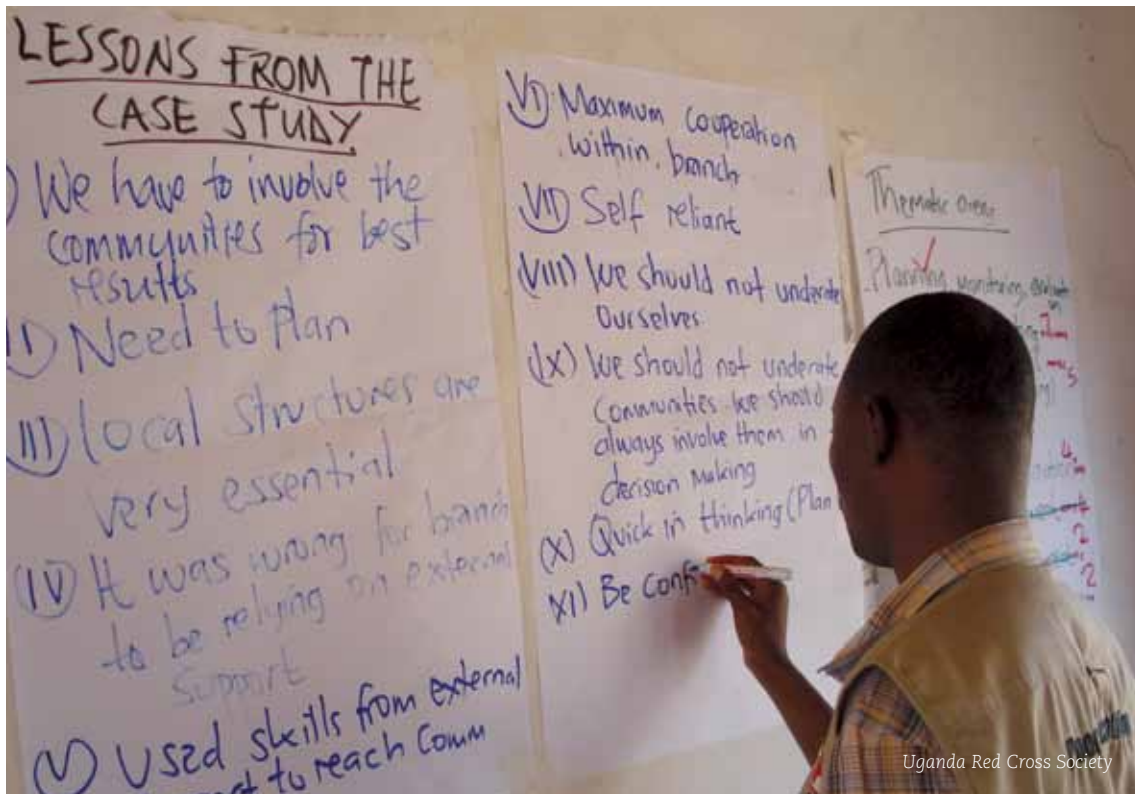 LESSONS FROM THE
CASE STUDY
) We have to involve the
communities for best
results
II) Need to Plan
III) Local structures are
very essential
(IV) It was wrong for branch
to be relying on external
support
(V) Used skills from external
to reach Comm
VI) Maximum cooperation
within branch
VII) Self reliant
(VIII) We should not underate
Ourselves
(IX) We should not underate
Communities we should
always involve them in
decision making
(X) Quick in thinking (Plan
XI) Be conf
Thematic areas
Planning monitoring, evaluat
Uganda Red Cross Society